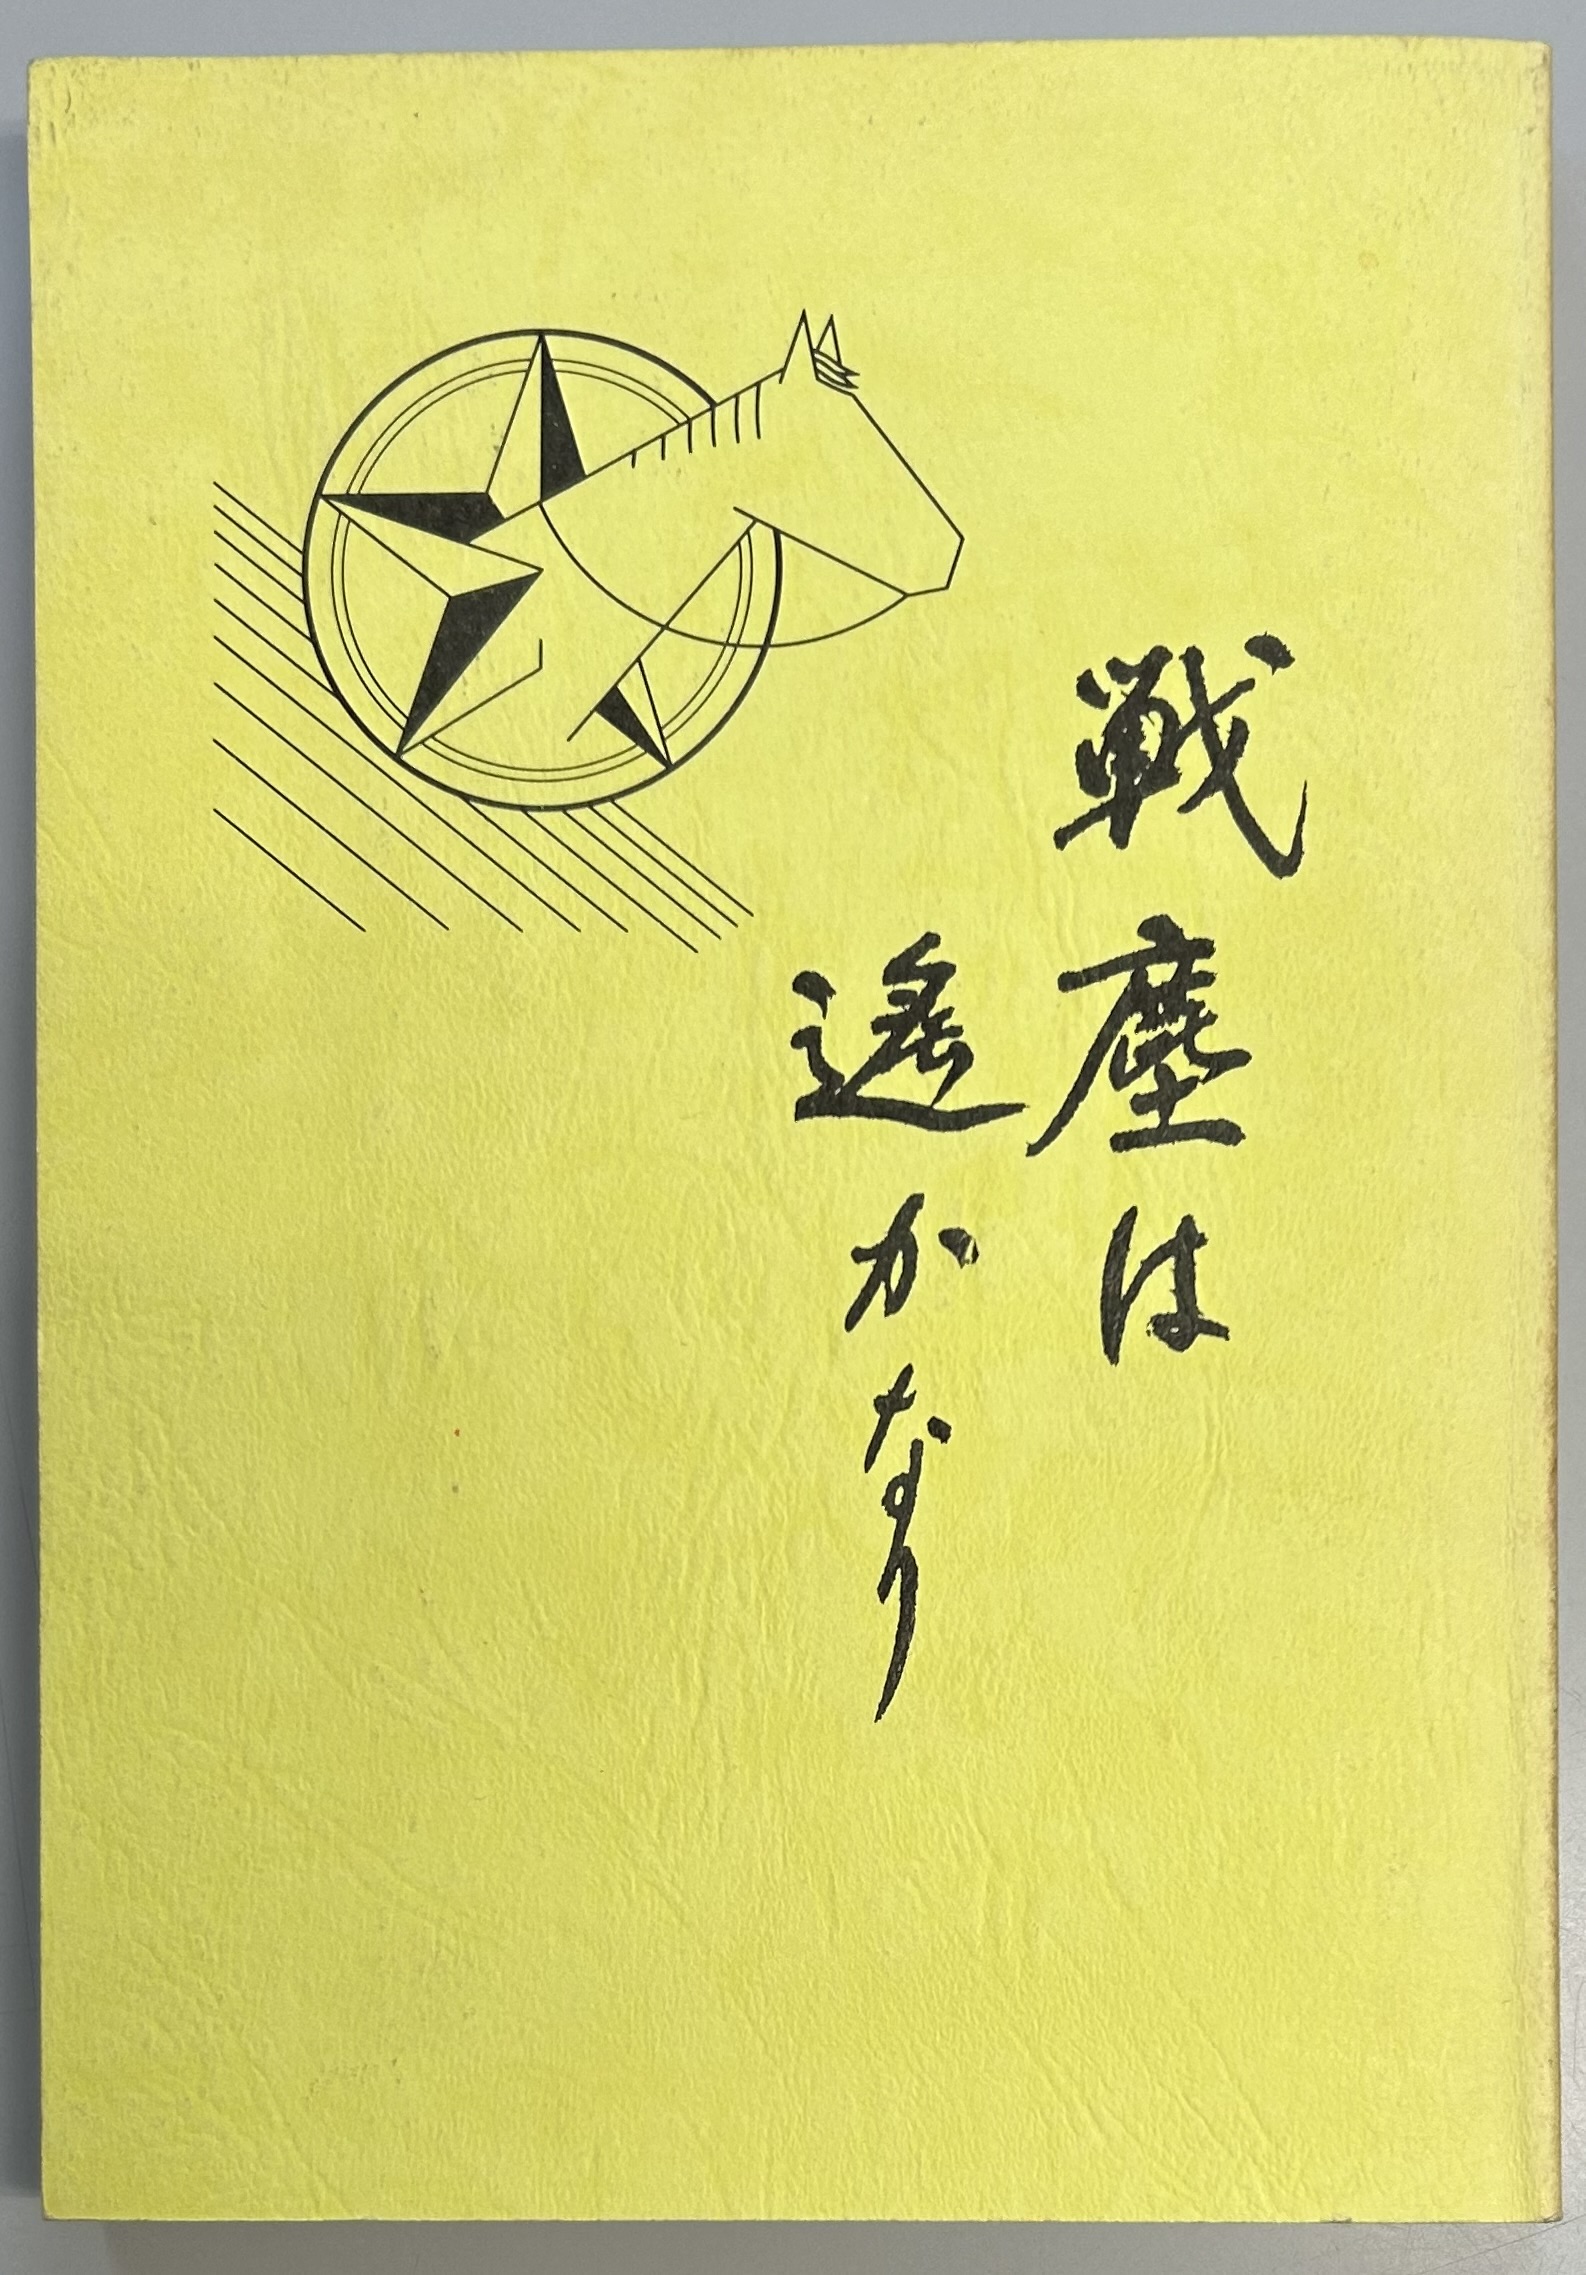 戦塵は
遙かなり